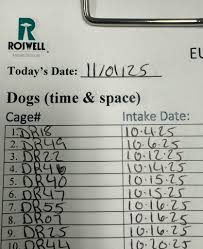 ROIWELL
EU
Today's Date: 11/01/25
Dogs (time & space)
Cage# Intake Date:
1. DR18 10.4.25
2. DR49 10.6.25
3. DR22 10.12.25
4. DR46 10.14.25
5. DR40 10.15.25
6. DR47 10.15.25
7. DR55 10.16.25
8. DR07 10.16.25
9. DR25 10.16.25
10. DR44